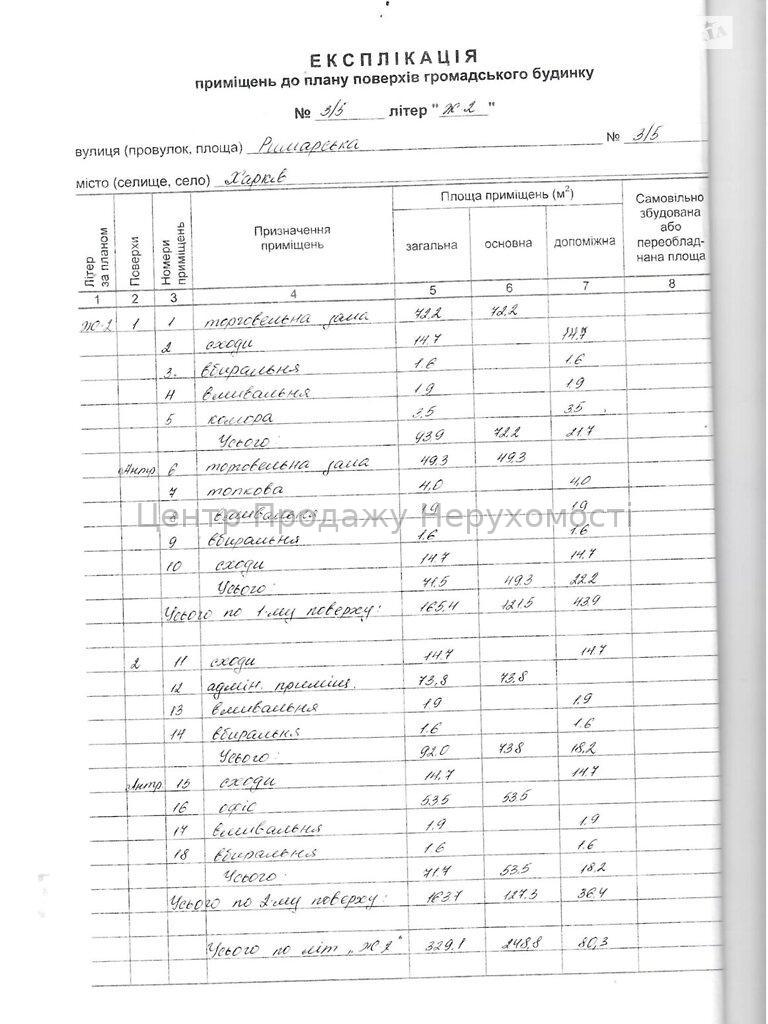 ЕКСПЛІКАЦІЯ
приміщень до плану поверхів громадського будинку
№ 3/5 літер "Ж-2"
вулиця (провулок, площа) Римарська № 3/5
місто (селище, село) Харків
Літер за планом Поверхи Номери приміщень Призначення приміщень Площа приміщень (м²) загальна основна допоміжна Самовільно збудована або переобладнана площа
1 2 3 4 5 6 7 8
Ж-2 1 1 торговельна зала 72.2 72.2
2 сходи 14.7 14.7
3. вбиральня 1.6 1.6
4 вмивальня 1.9 1.9
5 комора 3.5 3.5
Усього: 93.9 72.2 21.7
Антр 6 торговельна зала 49.3 49.3
7 топкова 4.0 4.0
8 вмивальня 1.9 1.9
Центр Продажу Нерухомості
9 вбиральня 1.6 1.6
10 сходи 14.7 14.7
Усього: 71.5 49.3 22.2
Усього по 1-му поверху: 165.4 121.5 43.9
2 11 сходи 14.7 14.7
12 адмін. приміщ. 73.8 73.8
13 вмивальня 1.9 1.9
14 вбиральня 1.6 1.6
Усього: 92.0 73.8 18.2
Антр 15 сходи 14.7 14.7
16 офіс 53.5 53.5
17 вмивальня 1.9 1.9
18 вбиральня 1.6 1.6
Усього: 71.7 53.5 18.2
Усього по 2-му поверху: 163.7 127.3 36.4
Усього по літ „Ж-2" 329.1 248.8 80.3